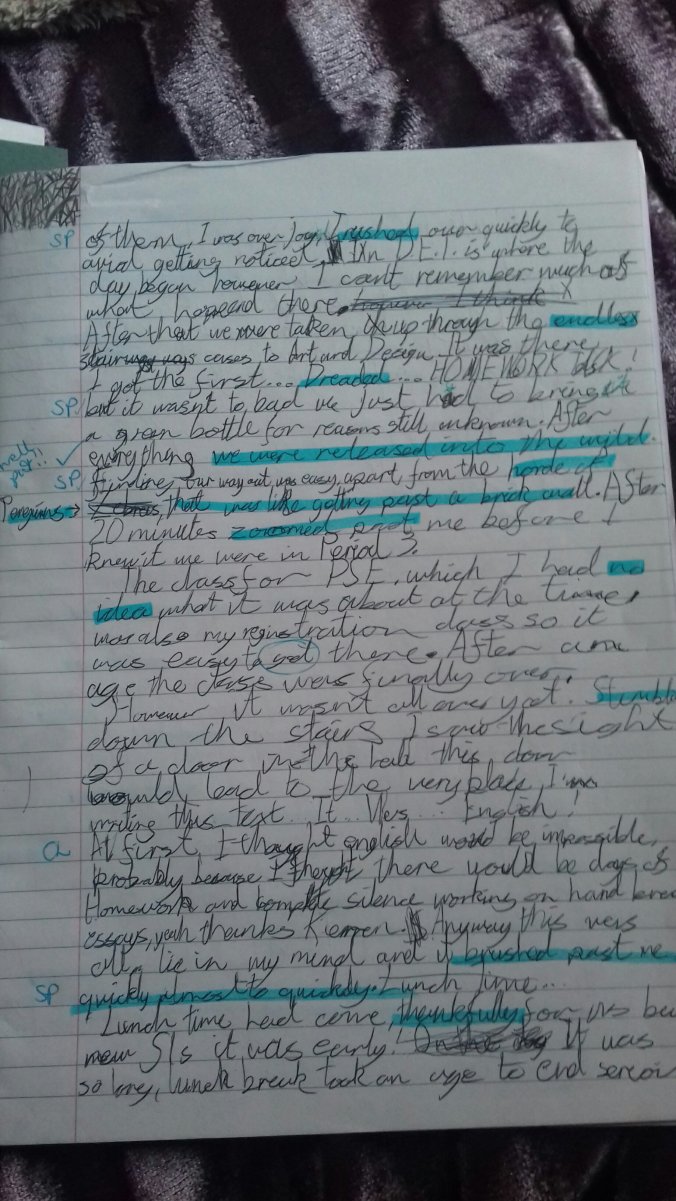 SP of them, I was over joy, I rushed over quickly to
avied getting noticed, In D.E.T. is where the
day began however I cant remember much of
what happend there.
After that we were taken up through the endless
stair cases to Art and Design. It was there
I got the first... Dreaded... HOMEWORK task!
SP but it wasnt to bad we just had to bring in
a green bottle for reasons still unknown. After
well put!! ✓ everything we were released into the wild.
SP finding our way out was easy, apart from the horde of
Penguins → that was like getting past a brick wall. After
20 minutes zoomed past me before I
knew it we were in Period 3.
The class for PSE, which I had no
idea what it was about at the time,
was also my registration class so it
was easy to get there. After an
age the class was finally over.
However it wasn't all over yet.
down the stairs I saw the sight
of a door in the hall this door
would lead to the very place I'm
writing this text... It... Was.... English!
a At first, I thought english would be impossible,
probably because I thought there would be days of
Homework and complete silence working on hand
essays, yeah thanks Kieren. Anyway this was
all a lie in my mind and it brushed past me
SP quickly almost to quickly. Lunch Time...
Lunch time had come, thankfully for us
new S1s it was early! It was
so long, lunch break took an age to end